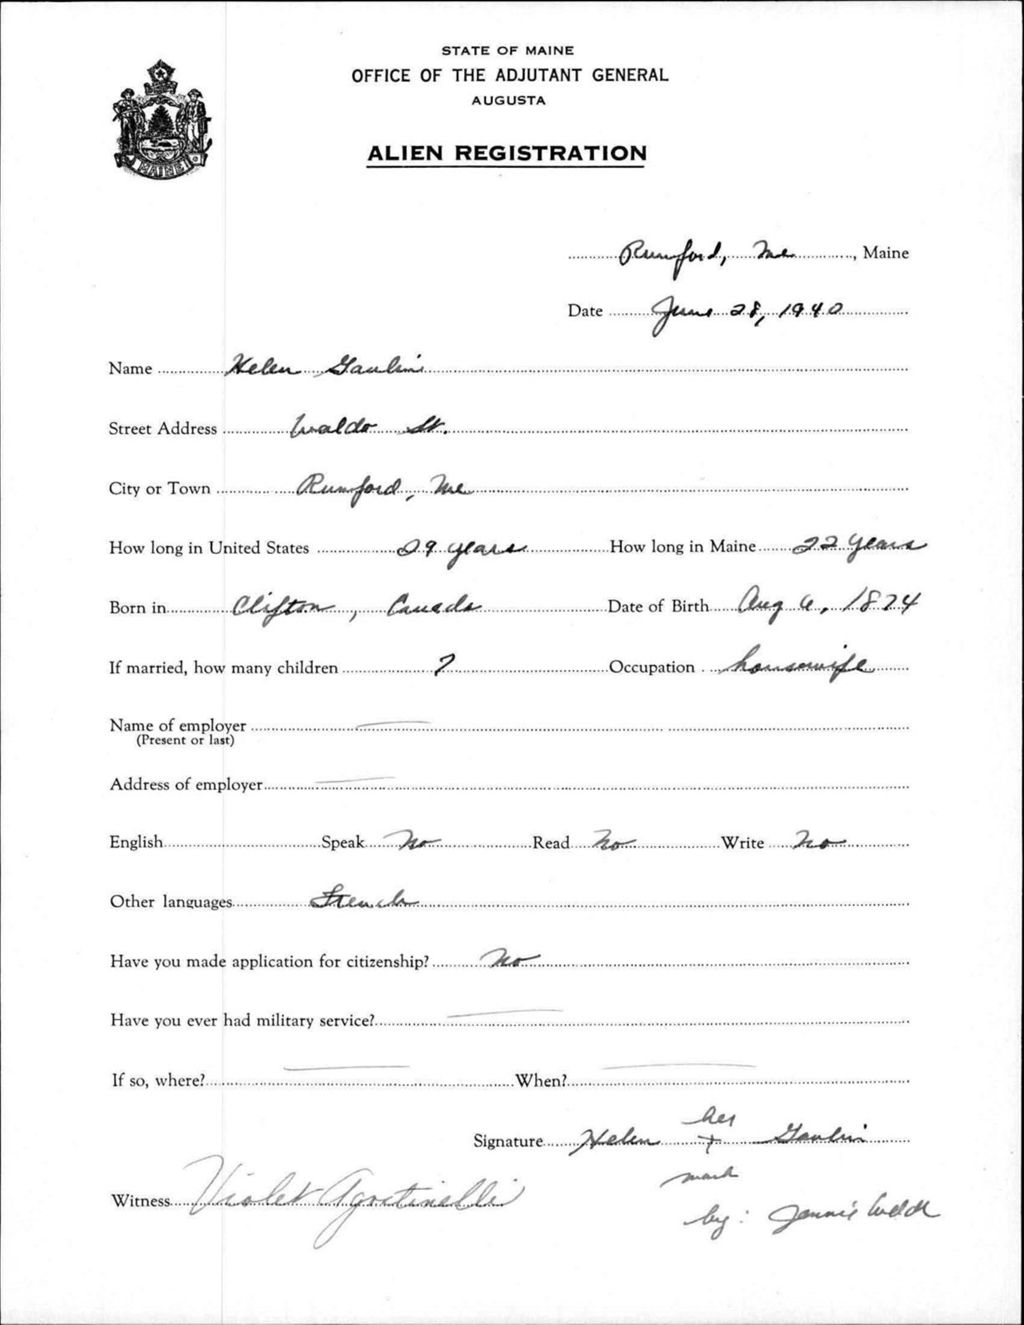 STATE OF MAINE
OFFICE OF THE ADJUTANT GENERAL
AUGUSTA
ALIEN REGISTRATION
MAINE
Rumford, Me, Maine
Date June 28, 1940
Name Helen Gaulin
Street Address Waldo St.
City or Town Rumford, Me
How long in United States 29 years How long in Maine 22 years
Born in Clifton, Canada Date of Birth Aug 6, 1874
If married, how many children 7 Occupation housewife
Name of employer
(Present or last)
Address of employer
English Speak No Read No Write No
Other languages French
Have you made application for citizenship? No
Have you ever had military service?
If so, where? When?
her
Signature Helen + Gaulin
mark
Witness Violet Agostinelli
by: Jennie Welch